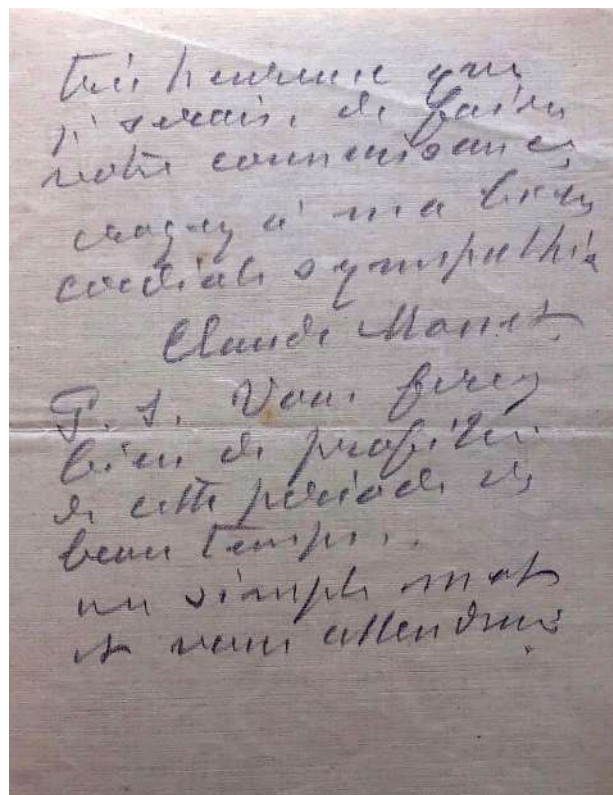 Très heureux que
je serais, de faire
votre connaissance,
croyez à ma bien
cordiale sympathie
Claude Monet.
P. S. Vous ferez
bien de profiter
de cette période de
beau temps..
un simple mot
et vous attendrai